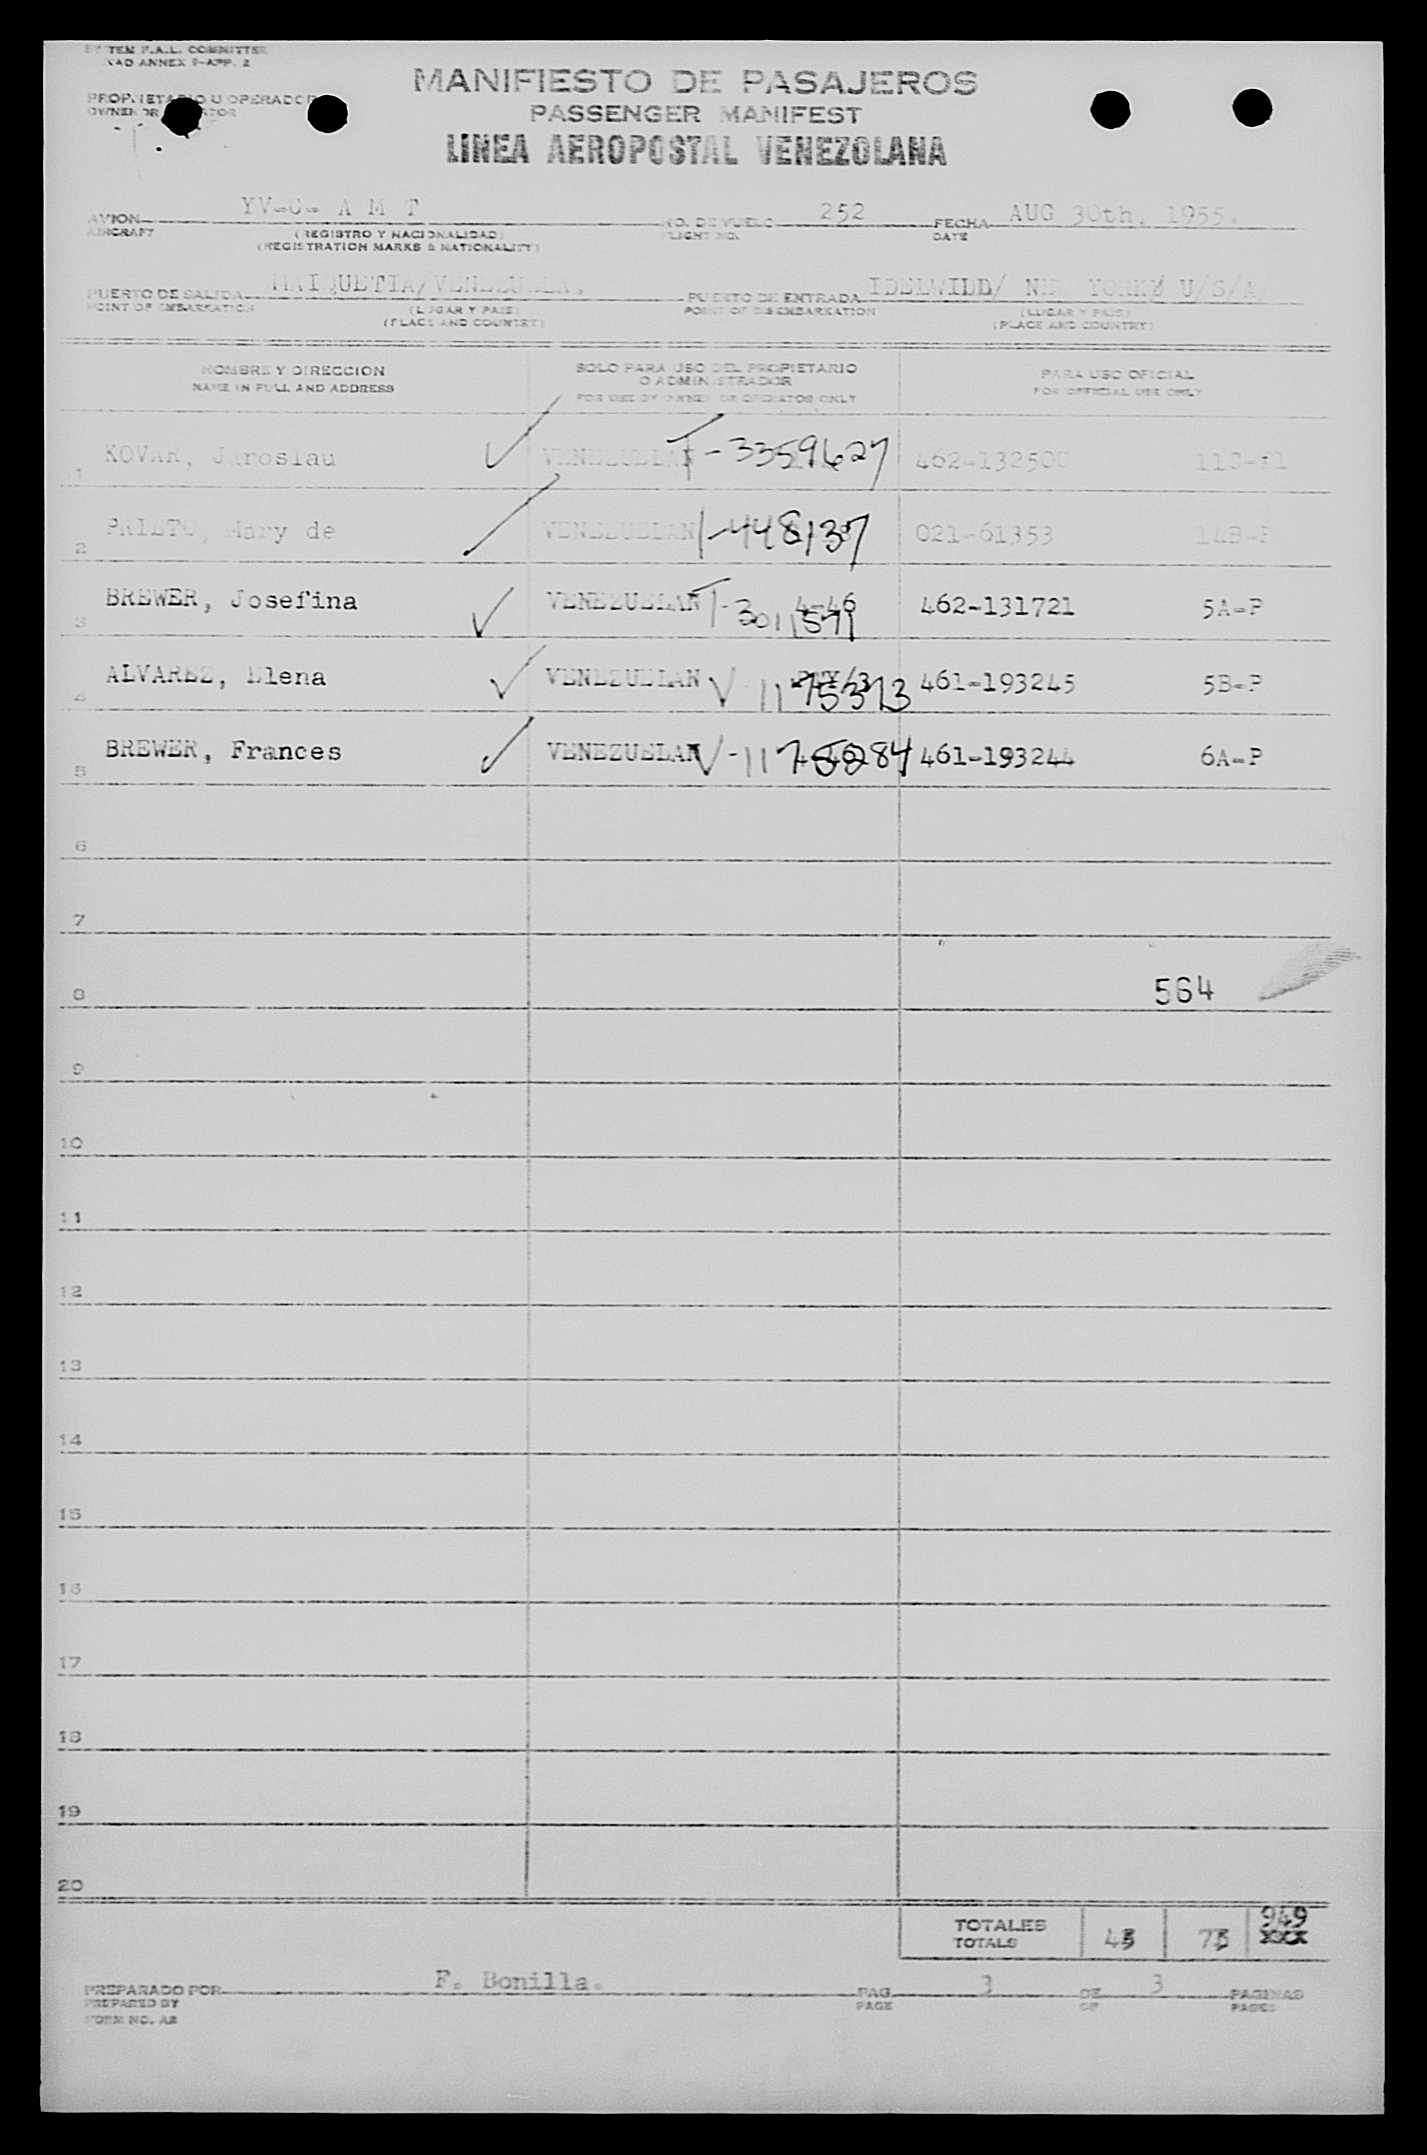 TEM F.A.L. COMMITTEE
ANNEX 9-APP. 2
MANIFIESTO DE PASAJEROS
PASSENGER MANIFEST
LINEA AEROPOSTAL VENEZOLANA
PROPIETARIO U OPERADOR
OWNER OR
AVION YV-C- A M T NO. DE VUELO 252 FECHA AUG 30th. 1955.
AIRCRAFT (REGISTRO Y NACIONALIDAD) FLIGHT NO. DATE
(REGISTRATION MARKS & NATIONALITY)
PUERTO DE SALIDA MAIQUETIA/VENEZUELA. PUERTO DE ENTRADA IDELWILD/ NEW YORK U/S/A/
POINT OF EMBARKATION (LUGAR Y PAIS) POINT OF DISEMBARKATION (LUGAR Y PAIS)
(PLACE AND COUNTRY) (PLACE AND COUNTRY)
NOMBRE Y DIRECCION SOLO PARA USO DEL PROPIETARIO PARA USO OFICIAL
NAME IN FULL AND ADDRESS O ADMINISTRADOR FOR OFFICIAL USE ONLY
FOR USE BY OWNER OR OPERATOR ONLY
1 KOVAR, Jaroslau VENEZUELAN T-3359627 462-132500
2 PRIETO, Mary de VENEZUELAN 448137 021-61353
3 BREWER, Josefina VENEZUELAN 4-46 462-131721 5A-P
4 ALVAREZ, Elena VENEZUELAN V 461-193245 5B-P
5 BREWER, Frances VENEZUELAN V-11 461-193244 6A-P
6
7
8 564
9
10
11
12
13
14
15
16
17
18
19
20
TOTALES 949
TOTALS xxx
PREPARADO POR F. Bonilla. PAG. 3 DE 3 PAGINAS
PREPARED BY PAGE OF PAGES
FORM NO. A2